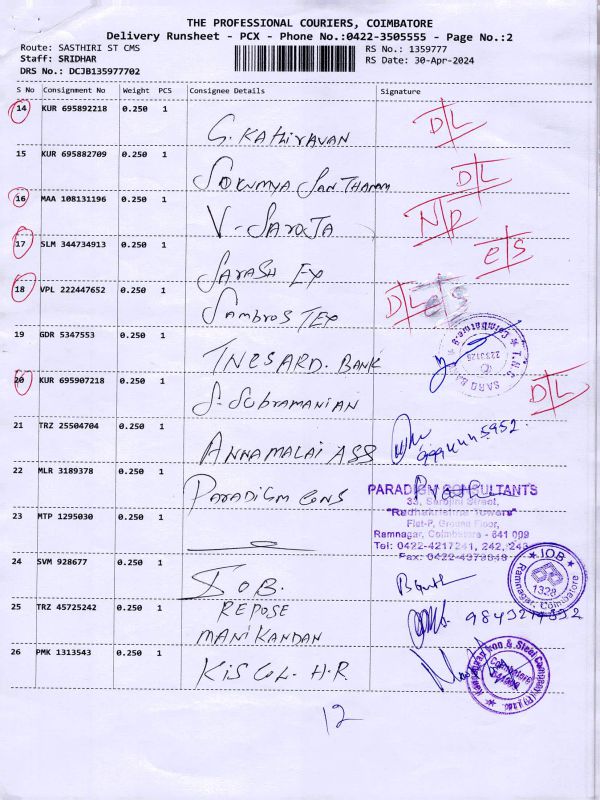 THE PROFESSIONAL COURIERS, COIMBATORE
Delivery Runsheet - PCX - Phone No.:0422-3505555 - Page No.:2
Route: SASTHIRI ST CMS RS No.: 1359777
Staff: SRIDHAR RS Date: 30-Apr-2024
DRS No.: DCJB135977702
S No Consignment No Weight PCS Consignee Details Signature
14 KUR 695892218 0.250 1 G. KATHIRAVAN D/L
15 KUR 695882709 0.250 1 Sowmya Santhanam D/L
16 MAA 108131196 0.250 1 V- SAROJA N/D
17 SLM 344734913 0.250 1 SARASH EX e/s
18 VPL 222447652 0.250 1 Sambros TEX D/L e/s
19 GDR 5347553 0.250 1 TNESARD. BANK
20 KUR 695907218 0.250 1 S. SUBRAMANIAN D/L
21 TRZ 25504704 0.250 1 ANNAMALAI ASS
22 MLR 3189378 0.250 1 PARADIGM CONS
PARADIGM CONSULTANTS
"Radhakrishna Towers"
Flat-P, Ground Floor,
Ramnagar, Coimbatore - 641 009
Tel: 0422-4217241, 242, 243
23 MTP 1295030 0.250 1
24 SVM 928677 0.250 1 IOB.
IOB
1328
Ramnagar, Coimbatore
25 TRZ 45725242 0.250 1 REPOSE
MANIKANDAN
26 PMK 1313543 0.250 1 KISCOL. H.R
12